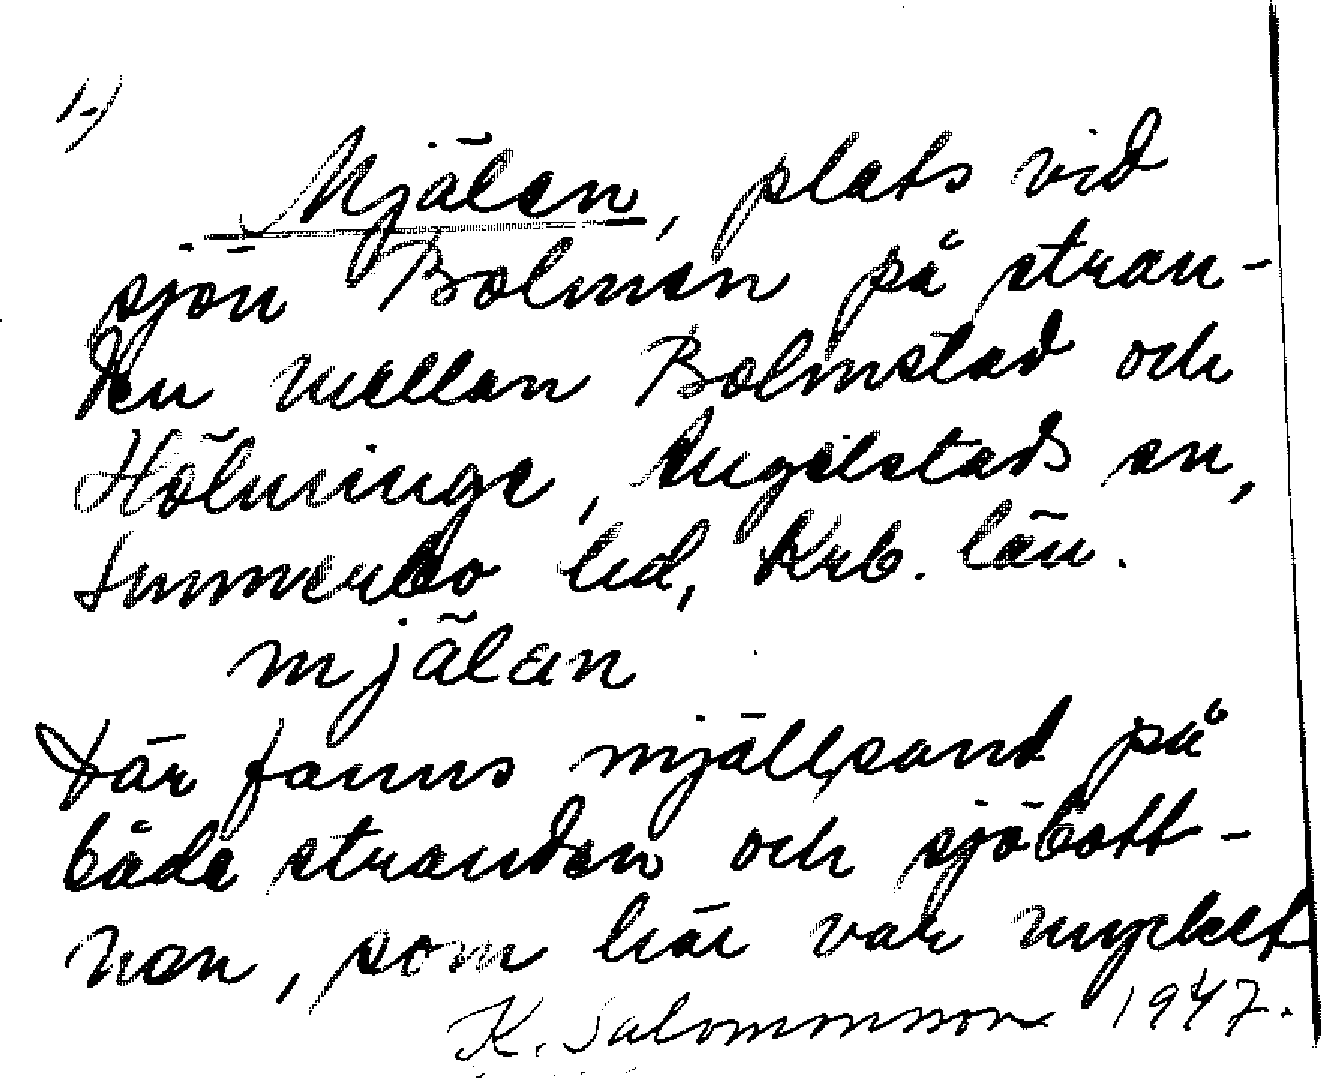 1.)
Mjälen, plats vid
sjön Bolmen på stran-
den mellan Bolmstad och
Hölminge, Angelstads sn,
Sunnerbo hd, Krb. län.
mjälen
Där fanns mjällsand på
både stranden och sjöbott-
nen, som här var mycket
K. Salomonsson 1947.